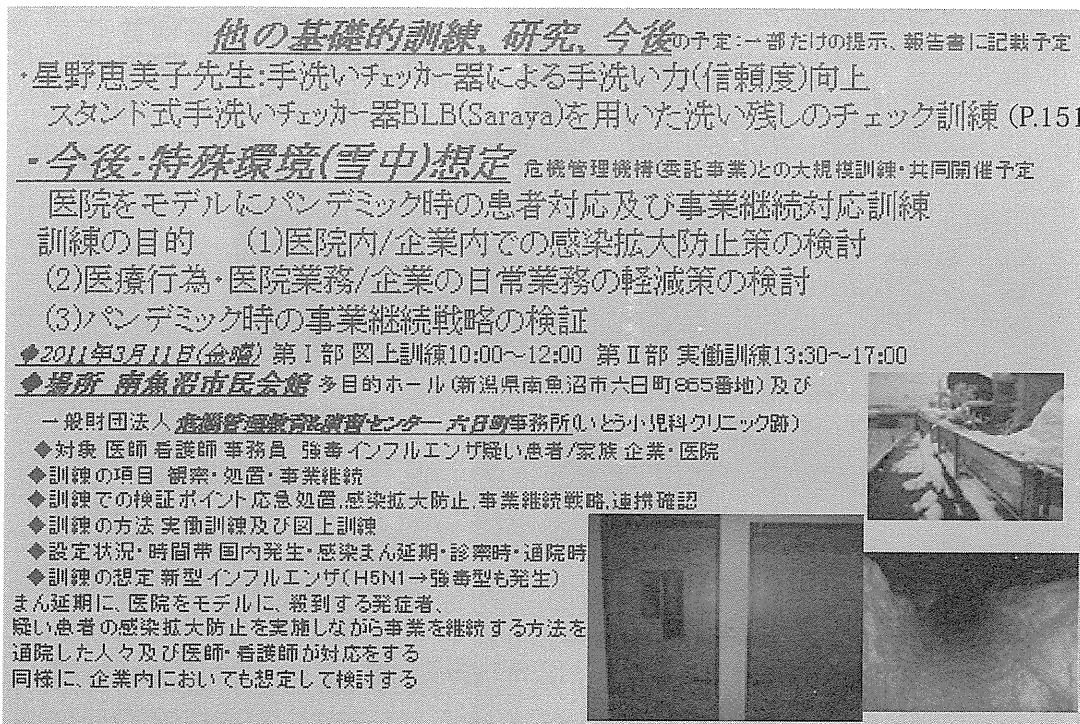 他の基礎的訓練, 研究, 今後の予定:一部だけの提示、報告書に記載予定
・星野恵美子先生:手洗いチェッカー器による手洗い力(信頼度)向上
スタンド式手洗いチェッカー器BLB(Saraya)を用いた洗い残しのチェック訓練 (P.151
・今後:特殊環境(雪中)想定 危機管理機構(委託事業)との大規模訓練・共同開催予定
医院をモデルにパンデミック時の患者対応及び事業継続対応訓練
訓練の目的 (1)医院内/企業内での感染拡大防止策の検討
(2)医療行為・医院業務/企業の日常業務の軽減策の検討
(3)パンデミック時の事業継続戦略の検証
◆2011年3月11日(金曜) 第Ⅰ部 図上訓練10:00～12:00 第Ⅱ部 実働訓練13:30～17:00
◆場所 南魚沼市民会館 多目的ホール(新潟県南魚沼市六日町865番地)及び
一般財団法人 危機管理教育&演習センター 六日町事務所(いとう小児科クリニック跡)
◆対象 医師 看護師 事務員 強毒インフルエンザ疑い患者/家族 企業・医院
◆訓練の項目 観察・処置・事業継続
◆訓練での検証ポイント 応急処置,感染拡大防止,事業継続戦略,連携確認
◆訓練の方法 実働訓練及び図上訓練
◆設定状況・時間帯 国内発生・感染まん延期・診察時・通院時
◆訓練の想定 新型インフルエンザ(H5N1→強毒型も発生)
まん延期に、医院をモデルに、殺到する発症者、
疑い患者の感染拡大防止を実施しながら事業を継続する方法を
通院した人々及び医師・看護師が対応をする
同様に、企業内においても想定して検討する